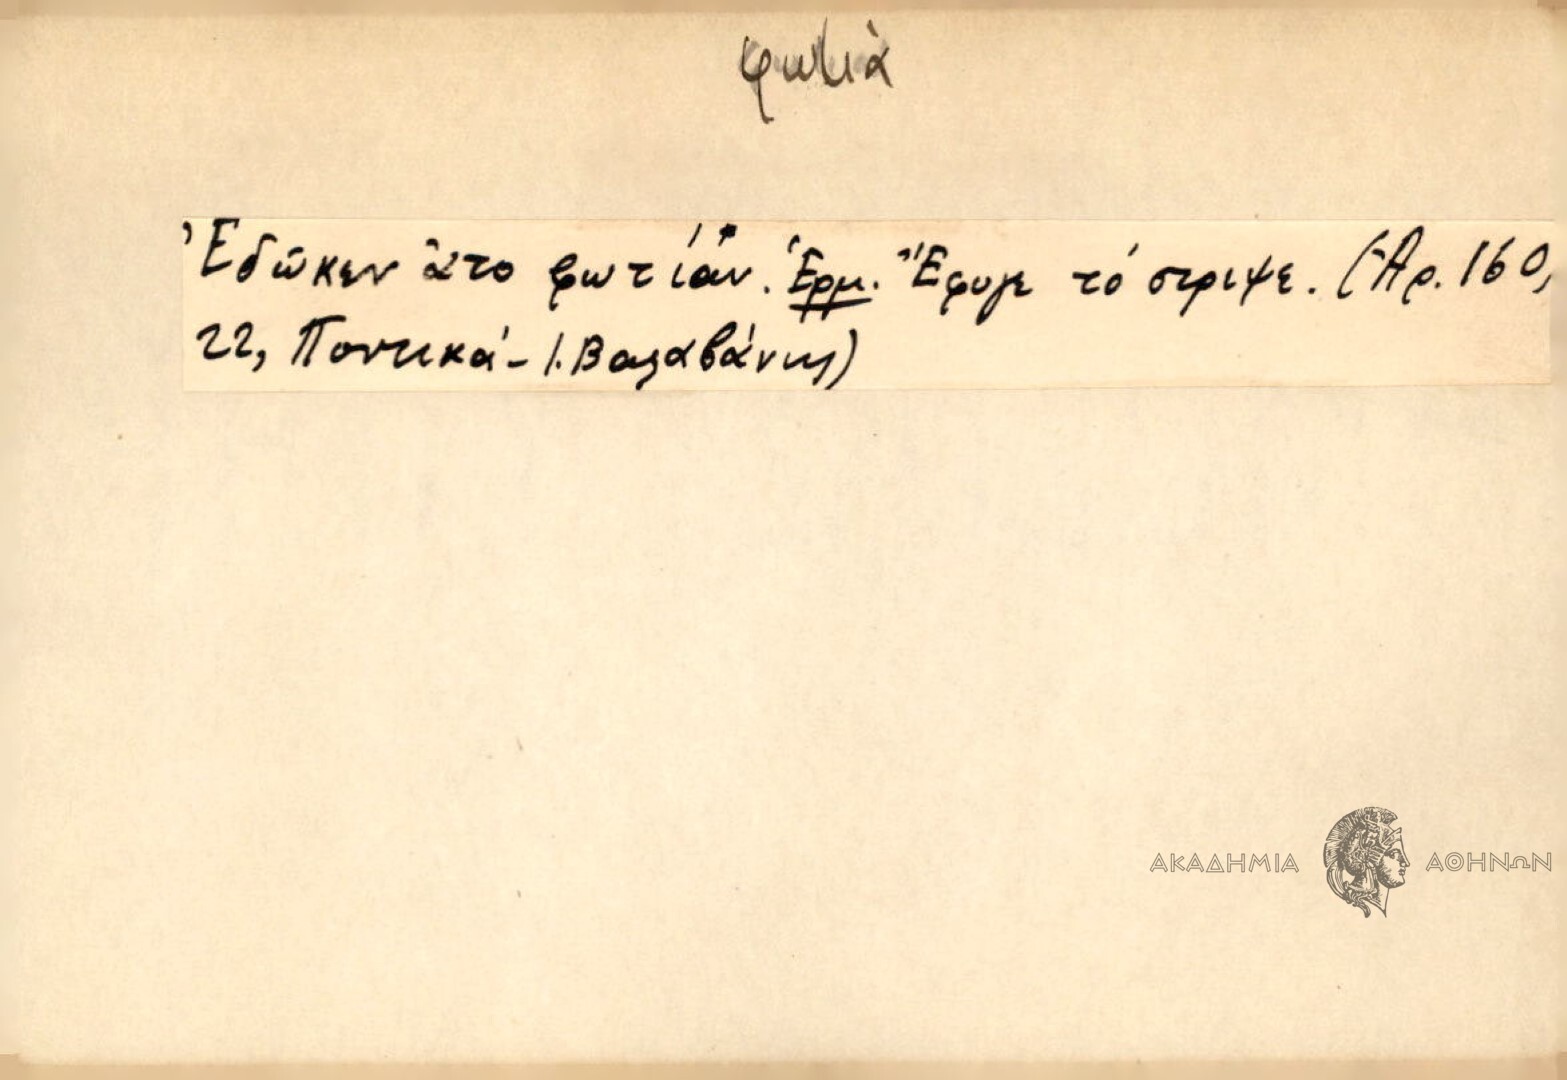 φωτιὰ
Ἐδῶκεν ἄτο φωτίαν. Ἑρμ. Ἔφυγε τό στριψε. (Ἀρ. 160,
22, Ποντικά - Ι. Βαλαβάνης)
ΑΚΑΔΗΜΙΑ ΑΘΗΝΩΝ